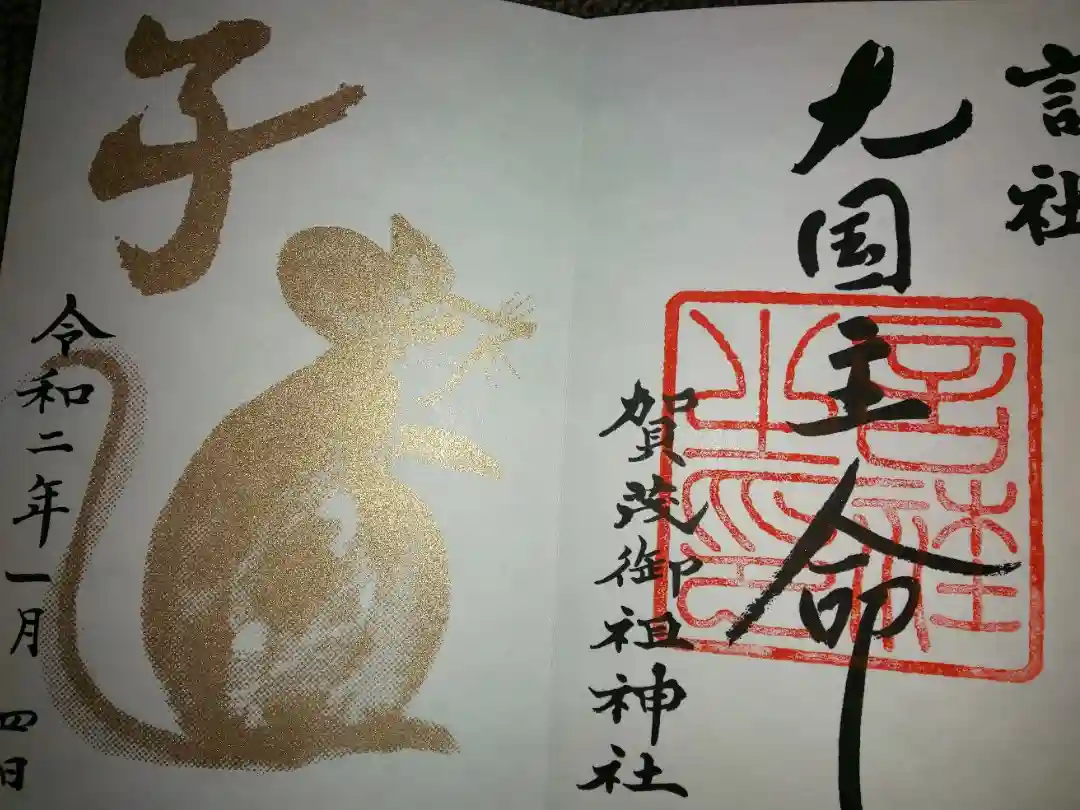 言社
大国主命
言社之印
賀茂御祖神社
子
令和二年一月四日